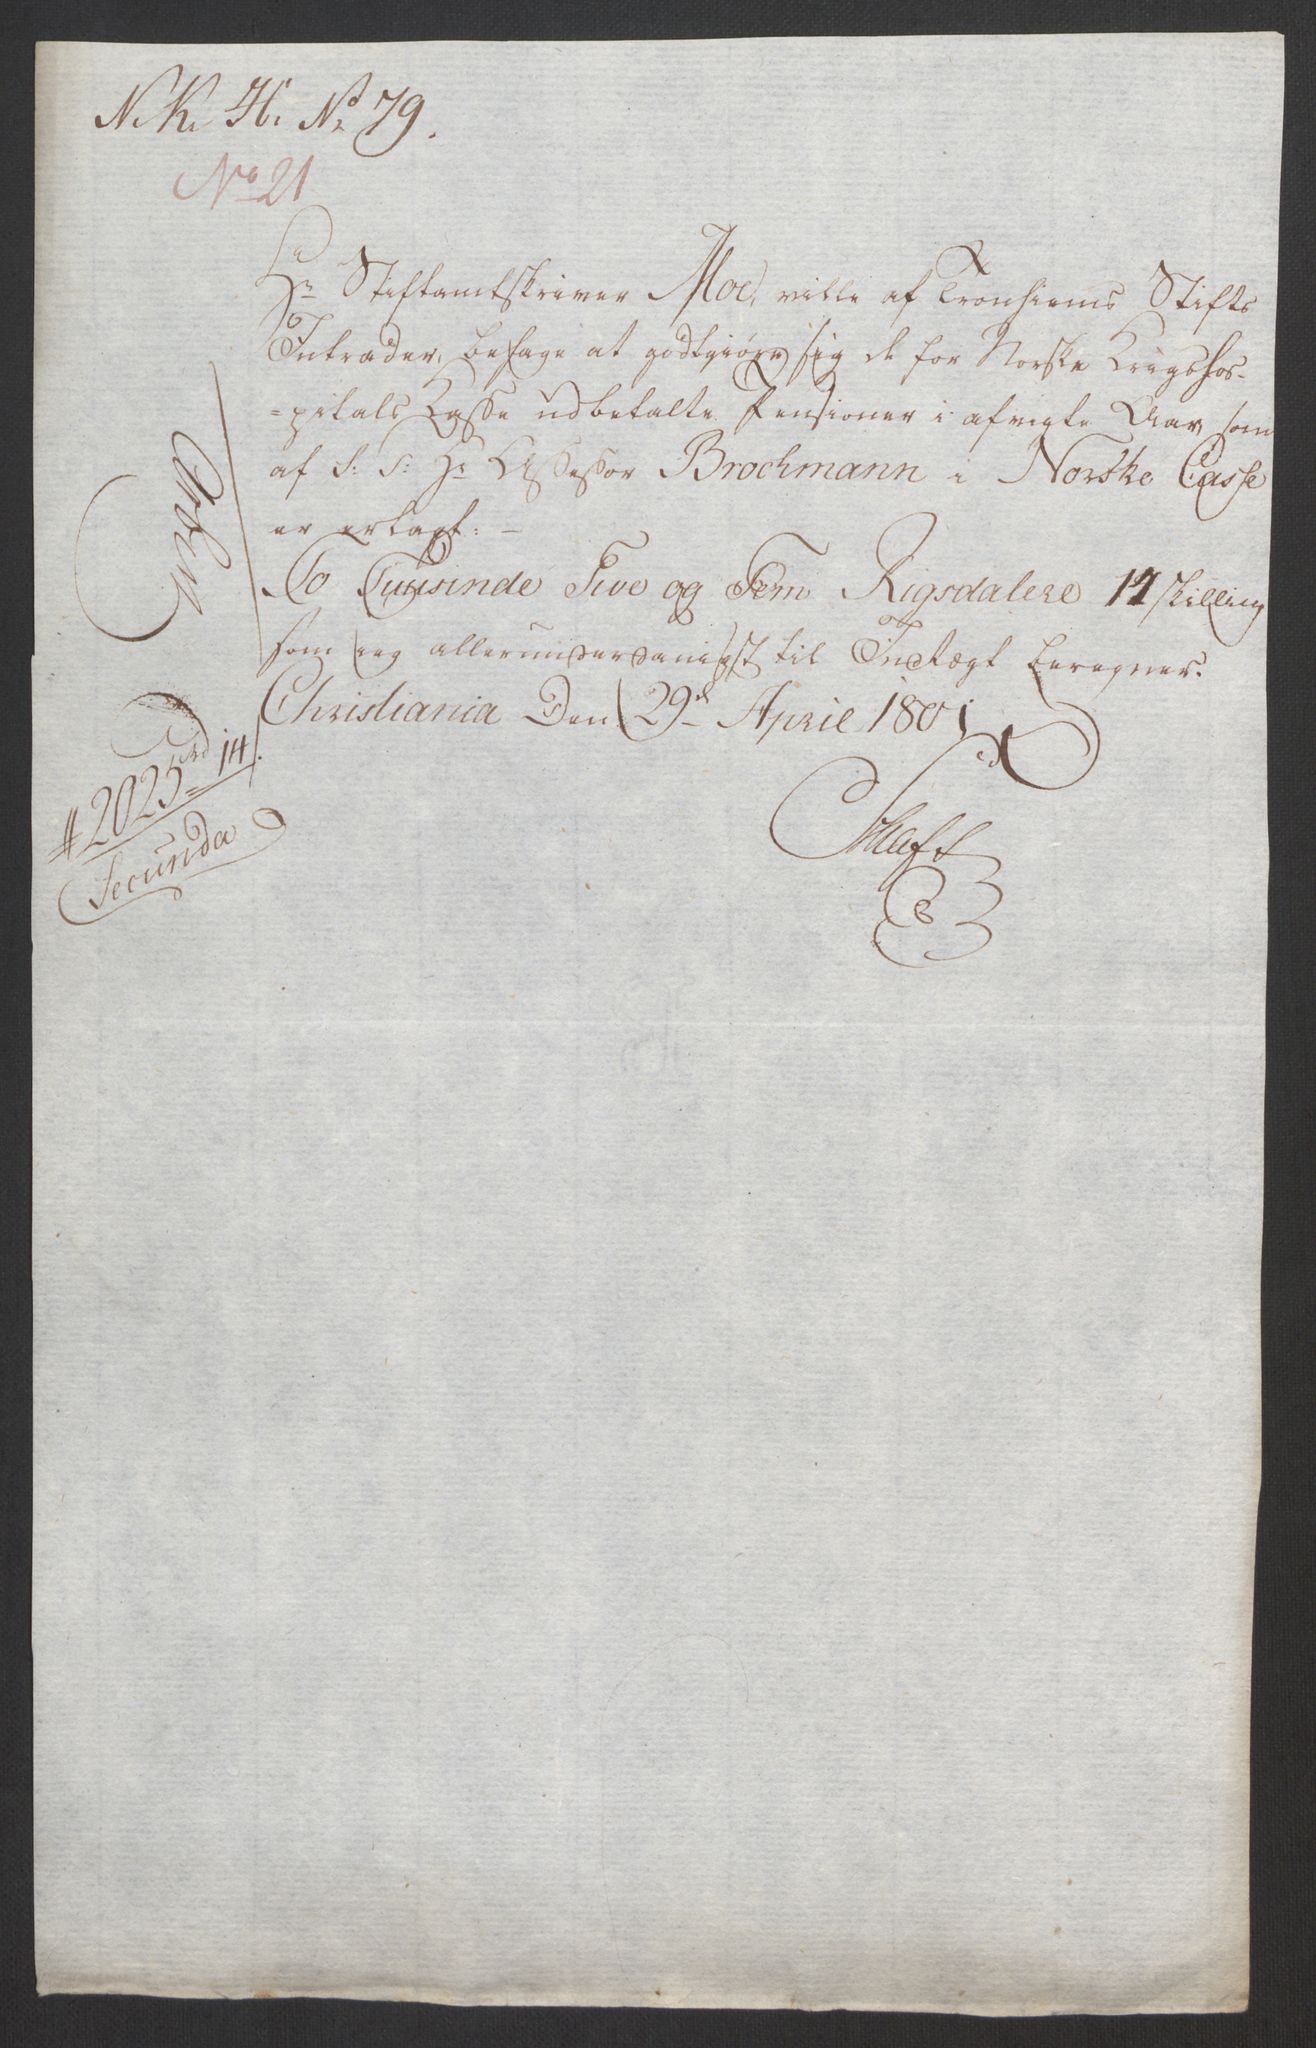 N. K. H. No 79.
No 21
Hr Stiftamtskriver Moe, ville af Tronhiems Stifts
Intrader, behage at godtgiøre sig de for Norske Krigshos-
=pitals Casse udbetalte Pensioner i afvigte Aar, som
af S: T: Hr Assessor Brochmann i Norske Casse
er erlagt: -
To Tuusinde Tive og Fem Rigsdalere 14 skilling
som ieg allerunderdanigst til Indtægt beregner.
Christiania Den 29de April 1801
# 2025 rd 14 s.
Secunda